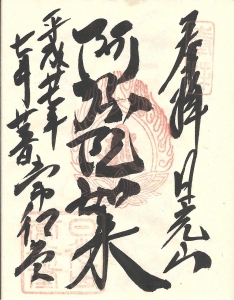 奉拝 日光山
阿弥陀如来
平成廿年
七月 常行堂